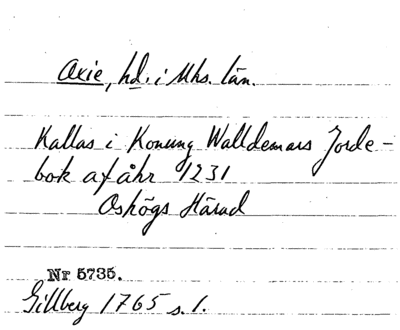 Oxie, hd. i Mhs. län.
Kallas i Konung Walldemars Jorde-
bok af åhr 1231
Oshögs Härad
Nr 5735.
Gillberg 1765 s. 1.